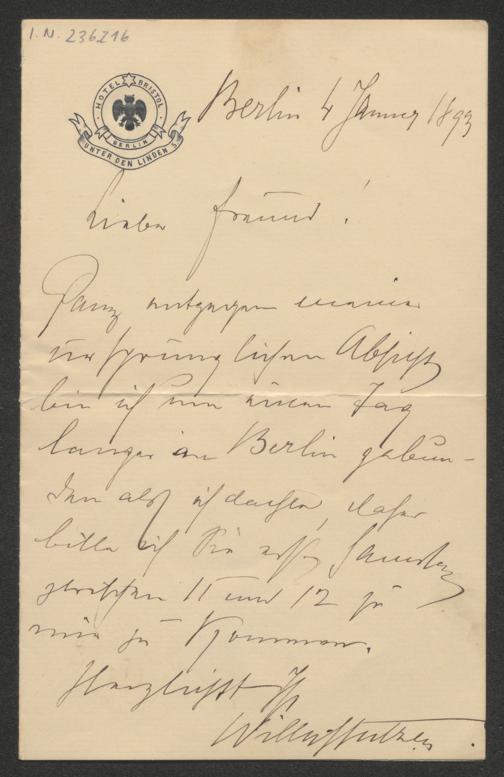 I.N. 236216
HOTEL BRISTOL
BERLIN
UNTER DEN LINDEN 5
Berlin 4 Jänner 1893
Lieber Freund!
Ganz entgegen meiner
ursprünglichen Absicht
bin ich um einen Tag
länger an Berlin gebun-
den als ich dachte, daher
bitte ich Sie erst Samstag
zwischen 11 und 12 zu
mir zu kommen.
Herzlichst Ihr